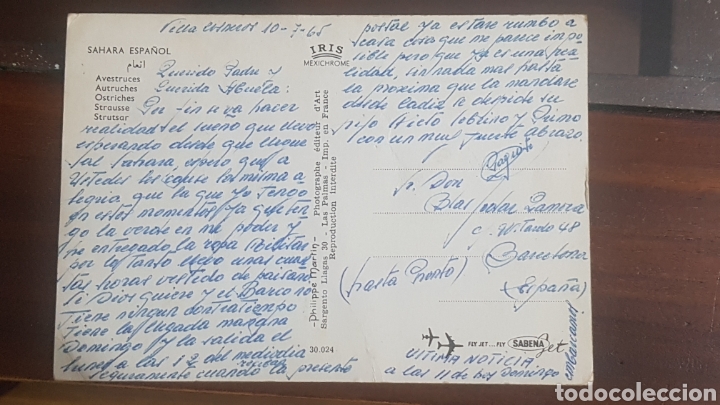 Villa Cisneros 10-7-65
SAHARA ESPAÑOL
انعام
Avestruces
Autruches
Ostriches
Strausse
Strutsar
IRIS
MEXICHROME
Querido Padre y
Querida Abuela:
Por fin va a hacer
realidad el sueño que llevo
esperando desde que llegue
al Sahara, espero que a
Ustedes les cause la misma a
legria, que la que yo tengo
en estos momentos, ya que ten
go la verde en mi poder y
he entregado la ropa Militar
por lo tanto llevo unas cuan
tas horas vestido de paisano
Si Dios quiere y el Barco no
tiene ningun contratiempo
tiene la llegada mañana
Domingo y la salida el
lunes a las 12 del mediodia
seguramente cuando la presente
postal ya estare rumbo a
casa cosa que me parece impo
sible pero que ya es una rea
lidad, sin nada mas hasta
la proxima que la mandare
desde Cadiz se despide su
hijo Nieto Sobrino y Primo
con un muy fuerte abrazo
Paquito
Sr. Don
Blas
C. 48
Barcelona
(España)
(Hasta Pronto)
-Philippe Martin- Photographe éditeur d'Art
Sargento Llagas 30 - Las Palmas - Imp. en France
Reproduction Interdite
30.024
FLY JET... FLY SABENA Jet
ULTIMA NOTICIA
a las 11 de hoy Domingo
embarcamos
todocoleccion.net